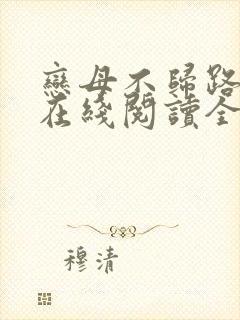 戀母不歸路
在綫閱讀全
穆清